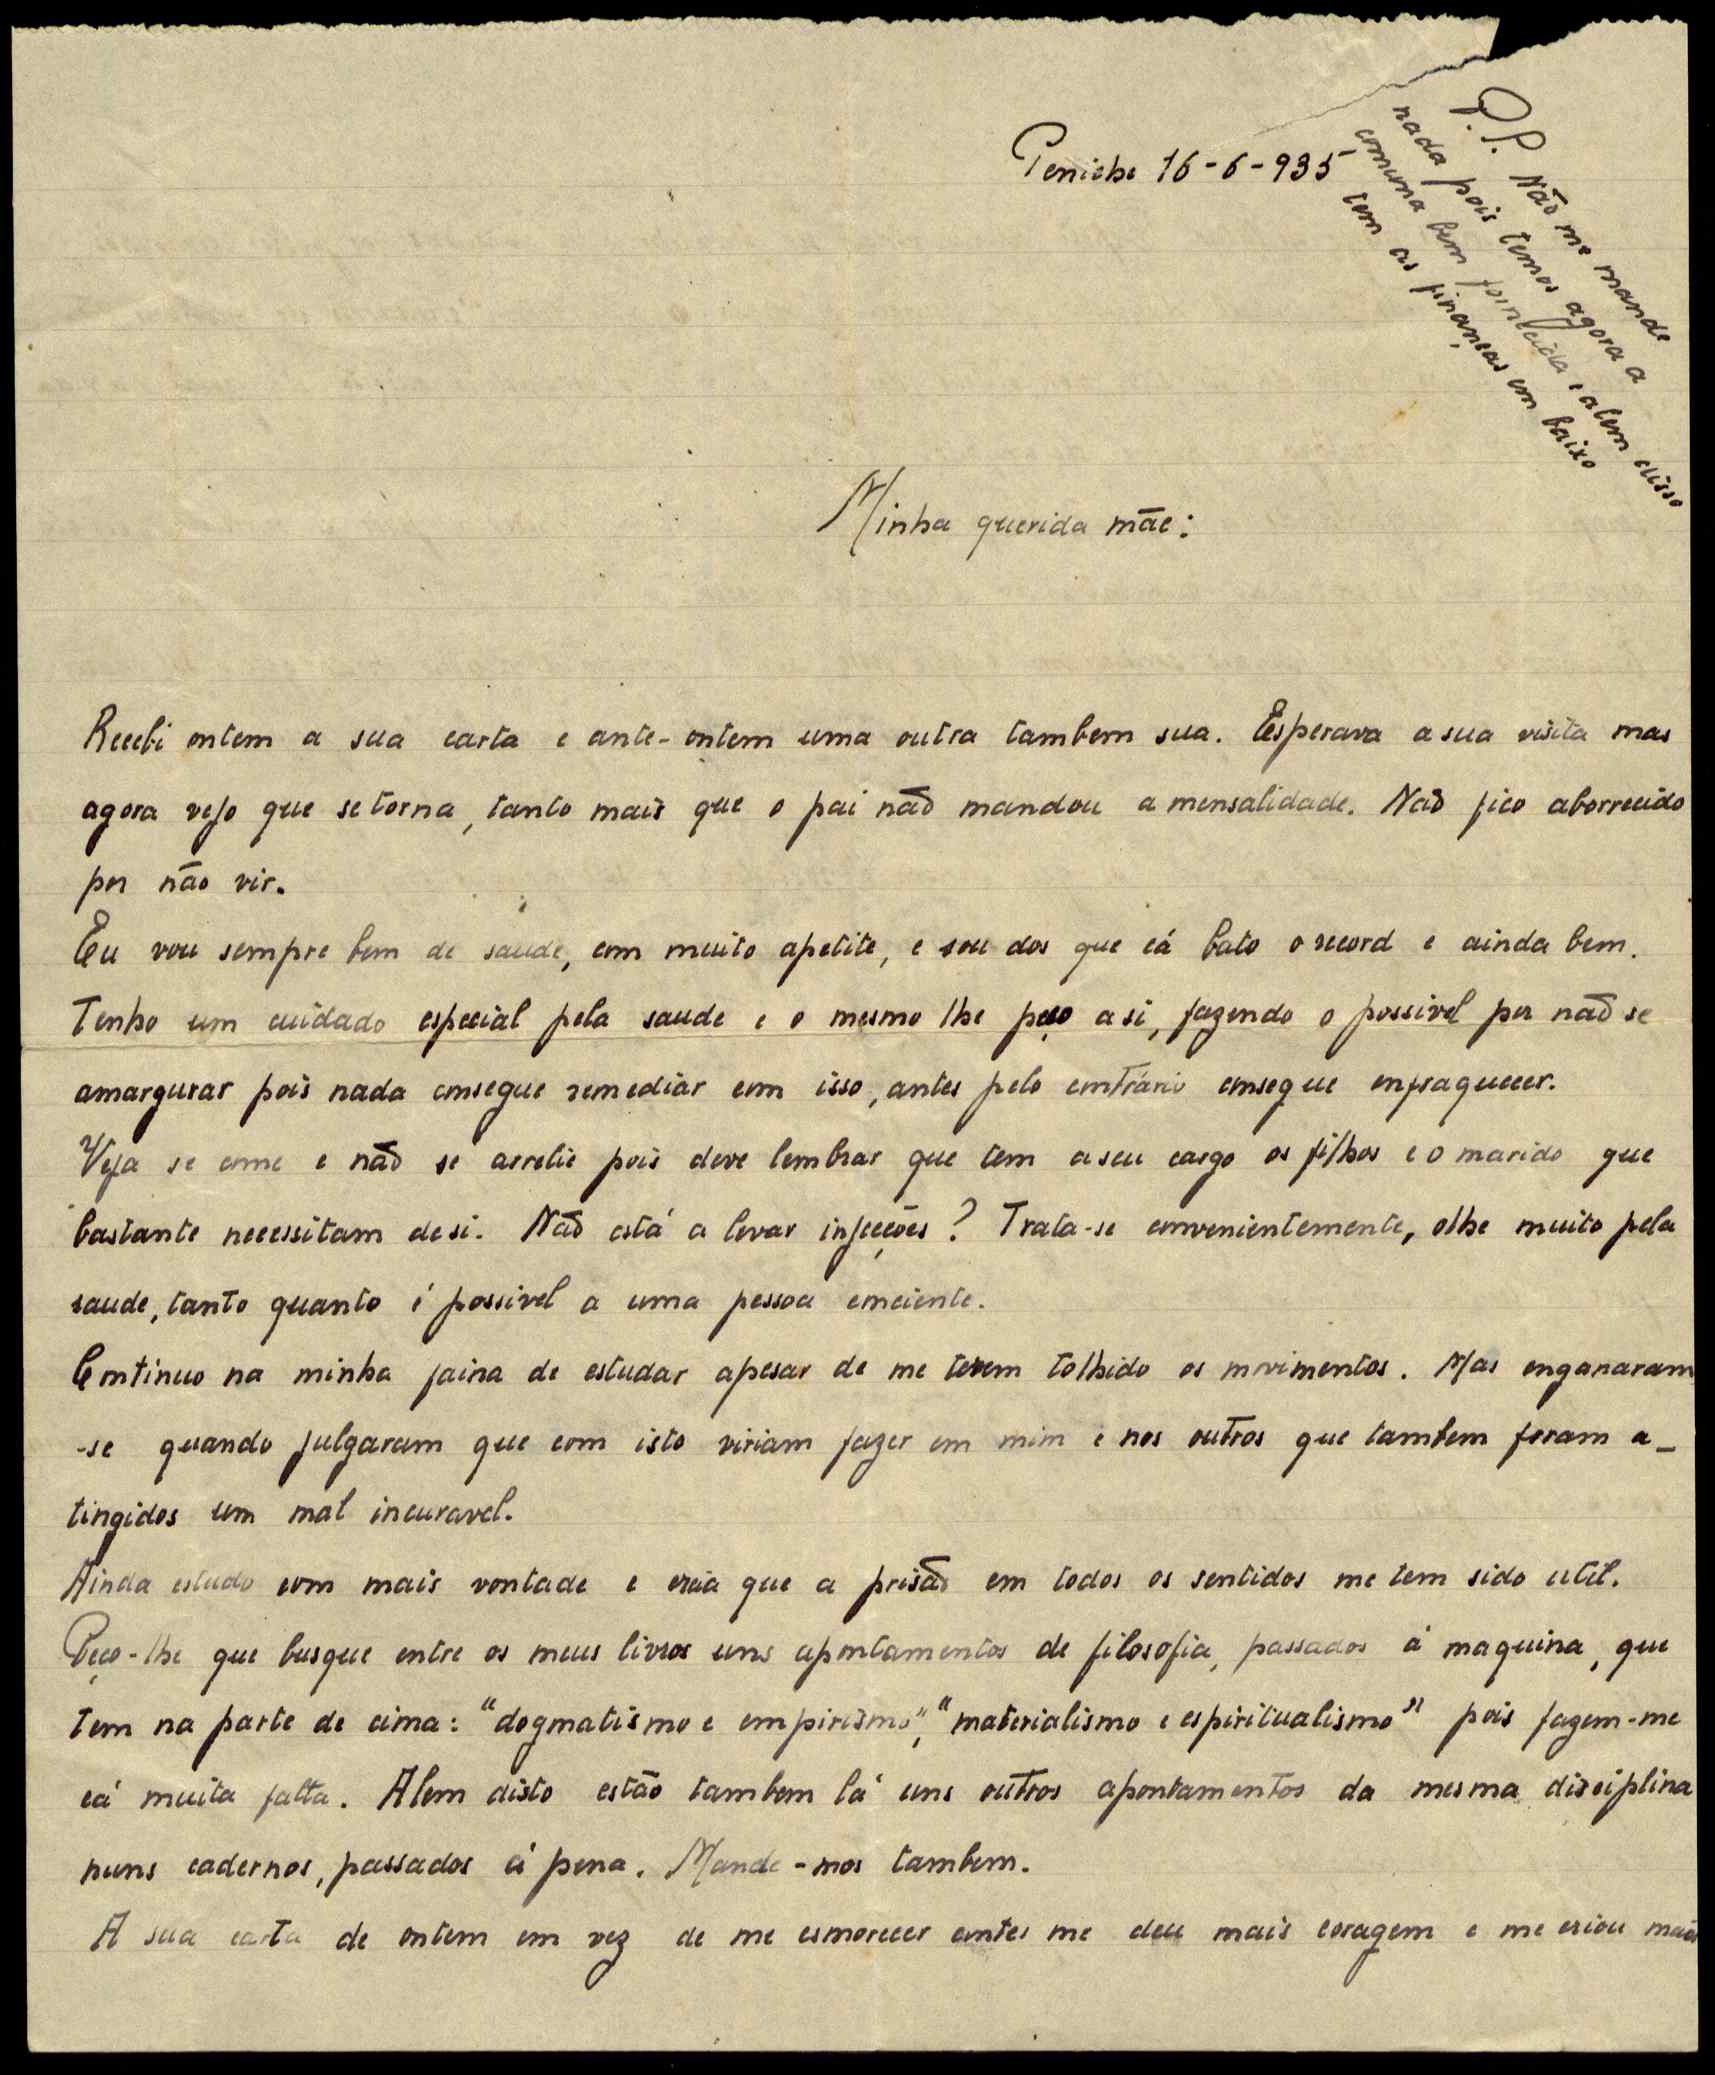 Peniche 16-6-935
P.P. Não me mande
nada pois temos agora a
comuna bem fornecida e alem disso
tem as finanças em baixo
Minha querida mãe:
Recebi ontem a sua carta e ante-ontem uma outra tambem sua. Esperava a sua visita mas
agora vejo que se torna, tanto mais que o pai não mandou a mensalidade. Não fico aborrecido
por não vir.
Eu vou sempre bem de saude, com muito apetite, e sou dos que cá bato o record e ainda bem.
Tenho um cuidado especial pela saude e o mesmo lhe peço a si, fazendo o possivel por não se
amargurar pois nada consegue remediar com isso, antes pelo contrário consegue enfraquecer.
Veja se come e não se arrelie pois deve lembrar que tem a seu cargo os filhos e o marido que
bastante necessitam de si. Não está a levar injecções? Trata-se convenientemente, olhe muito pela
saude, tanto quanto é possivel a uma pessoa conciente.
Continuo na minha faina de estudar apesar de me terem tolhido os movimentos. Mas enganaram
-se quando julgaram que com isto viriam fazer em mim e nos outros que tambem foram a-
tingidos um mal incuravel.
Ainda estudo com mais vontade e creia que a prisão em todos os sentidos me tem sido util.
Peço-lhe que busque entre os meus livros uns apontamentos de filosofia, passados á maquina, que
tem na parte de cima: "dogmatismo e empirismo", "materialismo e espiritualismo" pois fazem-me
cá muita falta. Alem disto estão tambem lá uns outros apontamentos da mesma disciplina
nuns cadernos, passados á pena. Mande-mos tambem.
A sua carta de ontem em vez de me esmorecer antes me deu mais coragem e me criou